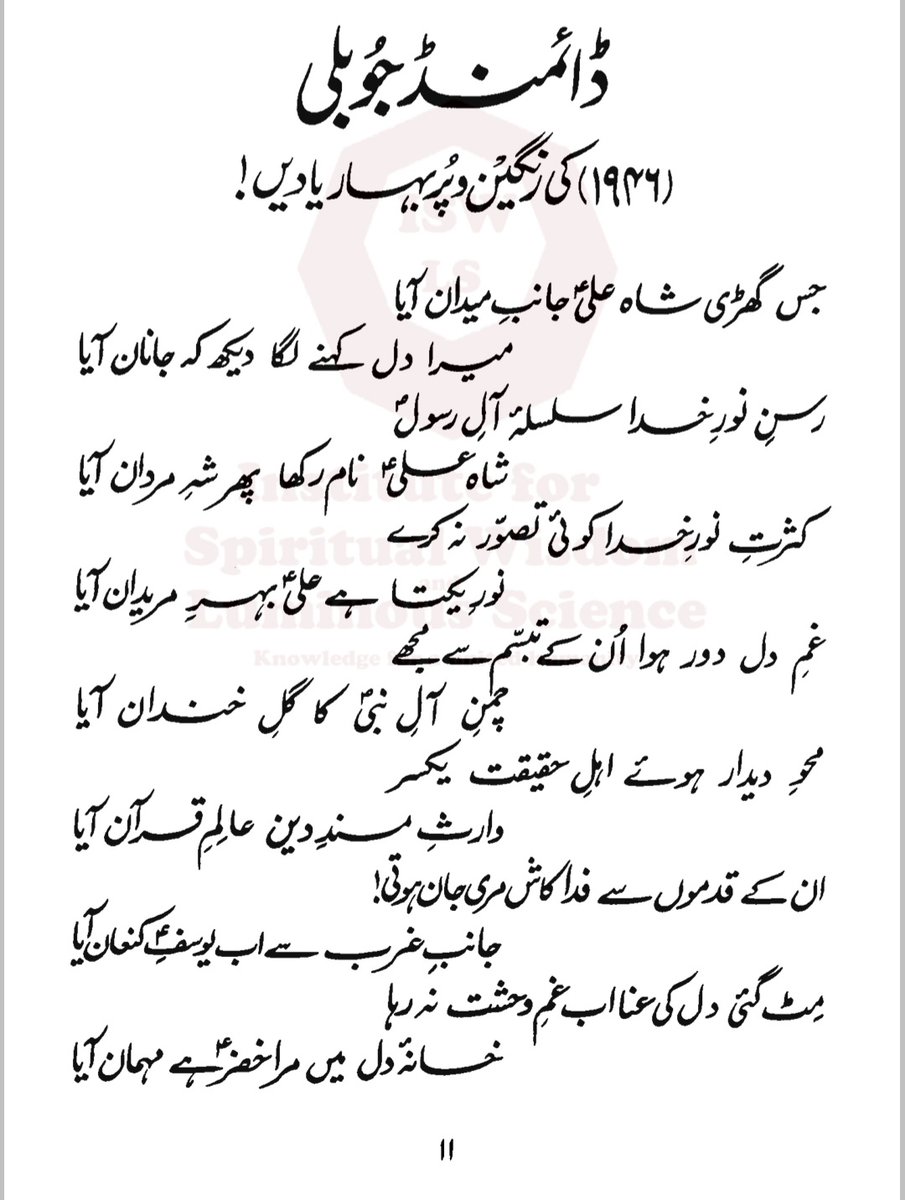 ڈائمنڈ جُوبلی
(۱۹۴۶) کی رنگین و پُر بہار یادیں!
جس گھڑی شاہ علیؑ جانبِ میدان آیا
میرا دل کہنے لگا دیکھ کہ جانان آیا
رسنِ نورِ خدا سلسلۂ آلِ رسولؐ
شاہ علیؑ نام رکھا پھر شہِ مردان آیا
کثرتِ نورِ خدا کوئی تصوّر نہ کرے
نورِ یکتا ہے علیؑ بہرِ مریدان آیا
غمِ دل دور ہوا اُن کے تبسّم سے مجھے
چمنِ آلِ نبیؐ کا گلِ خندان آیا
محوِ دیدار ہوئے اہلِ حقیقت یکسر
وارثِ مسندِ دین عالمِ قرآن آیا
ان کے قدموں سے فدا کاش مری جان ہوتی!
جانبِ غرب سے اب یوسفِؑ کنعان آیا
مِٹ گئی دل کی عنا اب غمِ وحشت نہ رہا
خانۂ دل میں مرا خضرؑ ہے مہمان آیا
۱۱
ISW
LS
Institute for
Spiritual Wisdom
and
Luminous Science